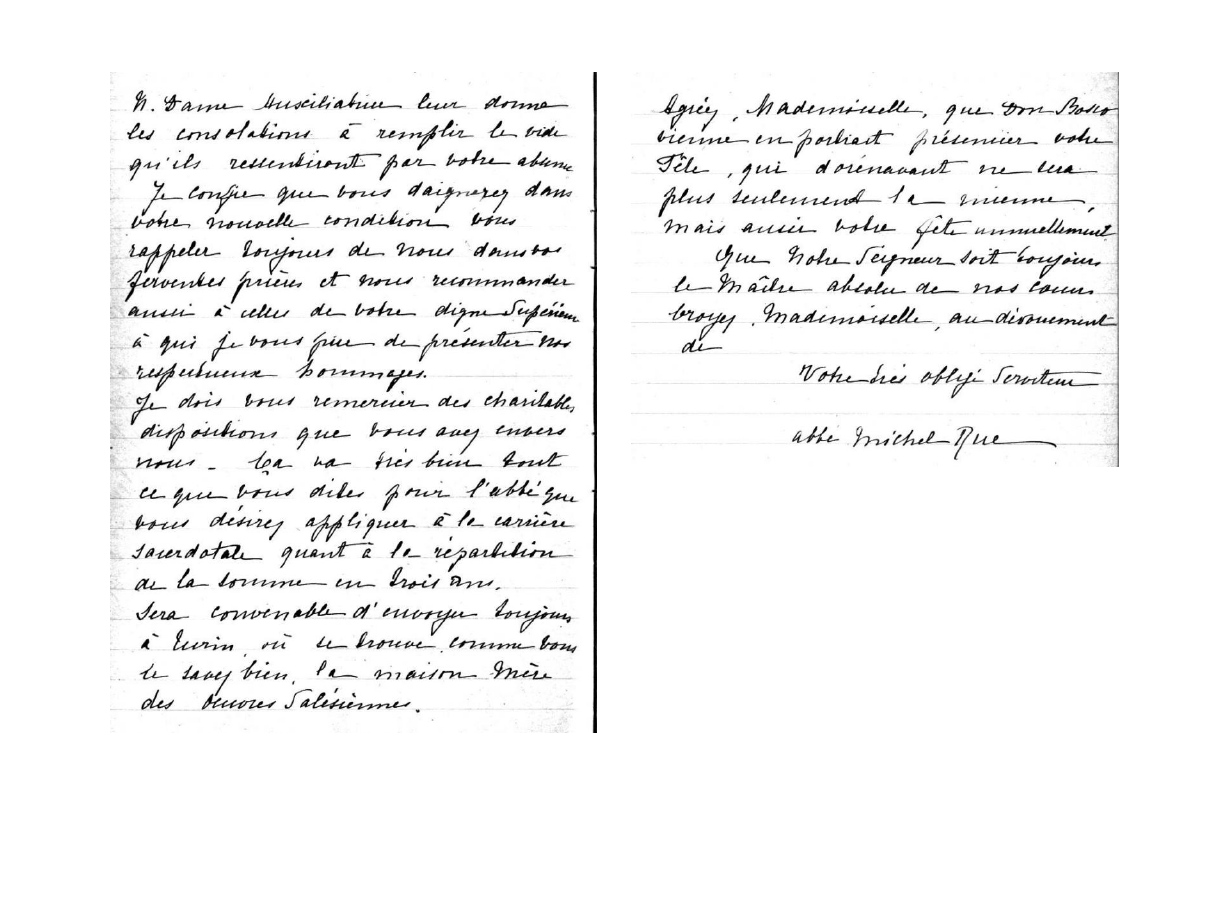 N. Dame Auxiliatrice leur donne
les consolations à remplir le vide
qu'ils ressentiront par votre absence
Je confie que vous daignerez dans
votre nouvelle condition vous
rappeler toujours de nous dans vos
ferventes prières et nous recommander
aussi à celles de votre digne Supérieure
à qui je vous prie de présenter nos
respectueux hommages.
Je dois vous remercier des charitables
dispositions que vous avez envers
nous - Ça va très bien tout
ce que vous dites pour l'abbé que
vous désirez appliquer à la carrière
sacerdotale quant à la répartition
de la somme en trois ans.
Sera convenable d'envoyer toujours
à Turin, où se trouve, comme vous
le savez bien, la maison Mère
des Oeuvres Salésiennes.
Agréez, Mademoiselle, que Don Bosco
vienne en portrait présencier votre
Fête, qui dorénavant ne sera
plus seulement la mienne,
mais aussi votre fête annuellement.
Que Notre Seigneur soit toujours
le Maître absolu de nos coeurs
Croyez, Mademoiselle, au dévouement
de
Votre très obligé Serviteur
abbé Michel Rue